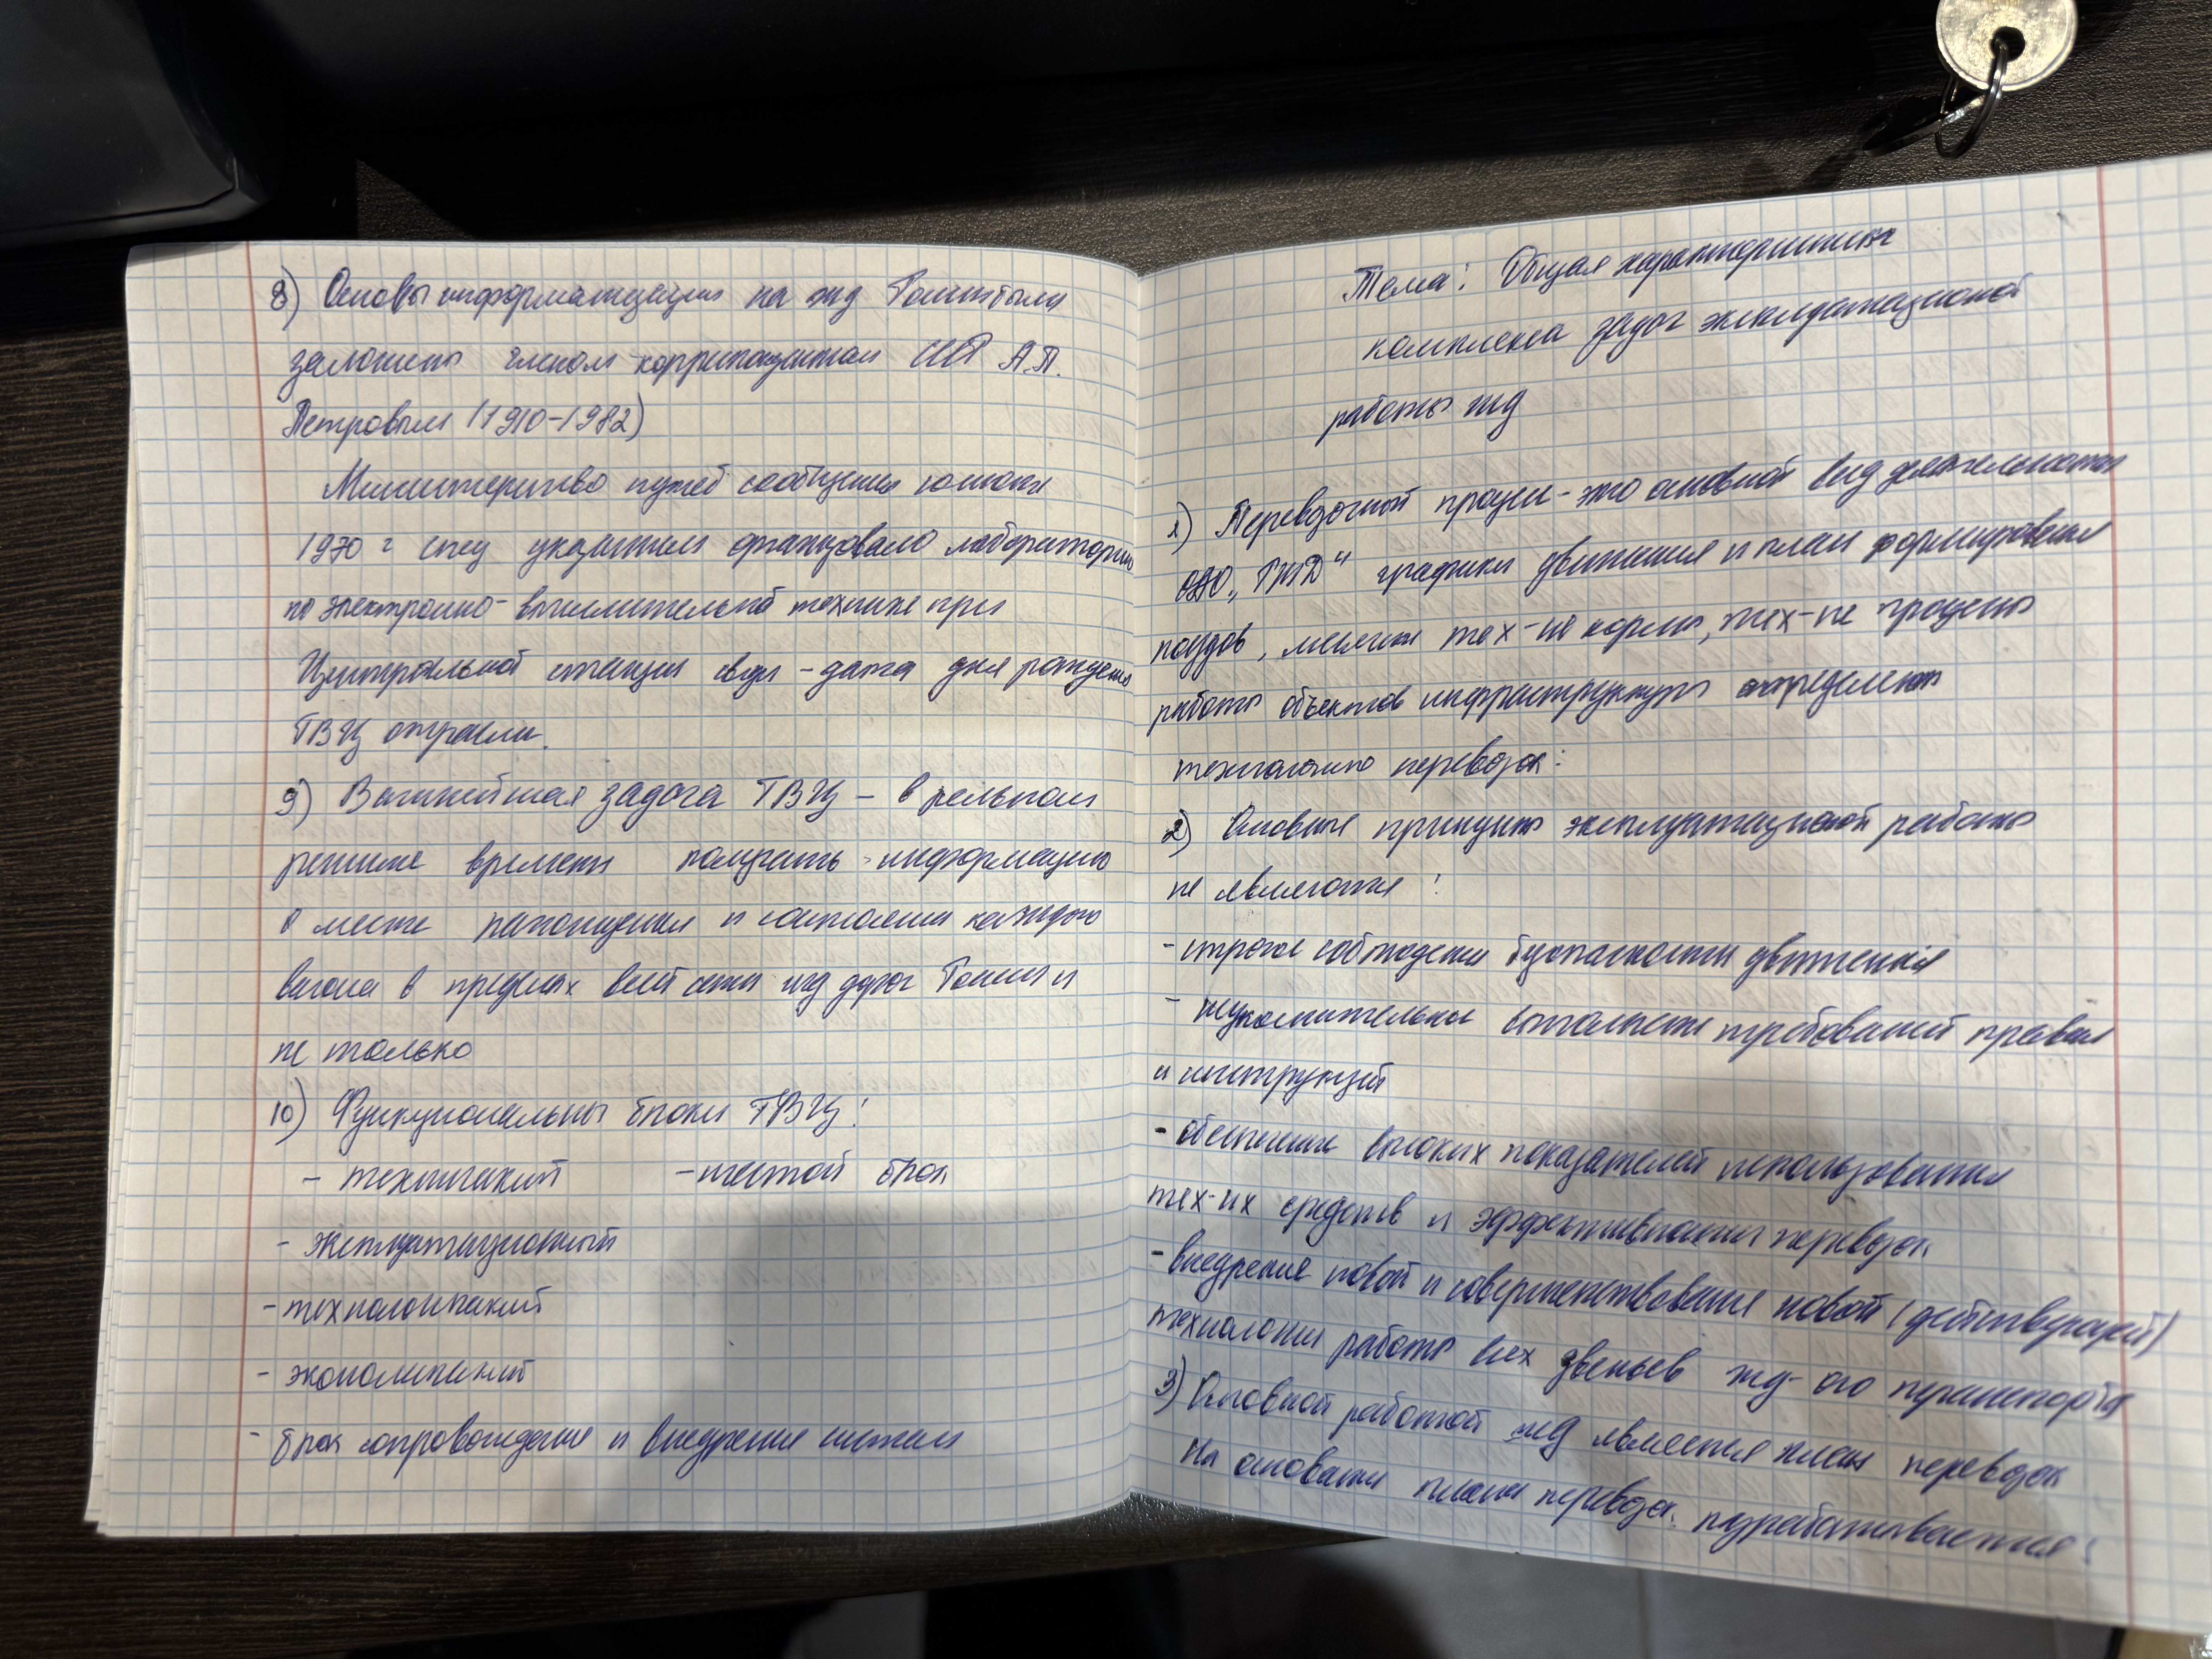 8) Основы информатизации на жд России были
заложены членом-корреспондентом СССР А.П.
Петровым (1910-1982)
Министерство путей сообщения
1970 г спец указанием организовало лабораторию
по электронно-вычислительной технике при
Центральной станции связи - дата дня рождения
ГВЦ отрасли.
9) Важнейшая задача ГВЦ - в реальном
режиме времени получать информацию
о месте нахождения и состоянии каждого
вагона в пределах всей сети жд дорог России и
не только
10) Функциональны блоки ГВЦ:
- технический - шестой блок
- эксплуатационный
- технологический
- экономический
- блок сопровождения и внедрения систем
Тема: Общая характеристика
комплекса задач эксплуатационной
работы жд
1) Перевозочный процесс - это основной вид деятельности
ОАО „РЖД" графики движения и план формирования
поездов, тех-ие нормы, тех-ие процессы
работы объектов инфраструктуры определяют
технологию перевозок:
2) Основные принципы эксплуатационной работы
не являются:
- строгое соблюдение безопасности движения
- требований правил
и инструкций
- обеспечение высоких показателей использования
тех-их средств и эффективности перевозок
- внедрение новой и совершенствование новой (действующей)
технологии работы всех звеньев жд-ого транспорта
3) Основной работой жд является план перевозок
На основании плана перевозок разрабатывается: